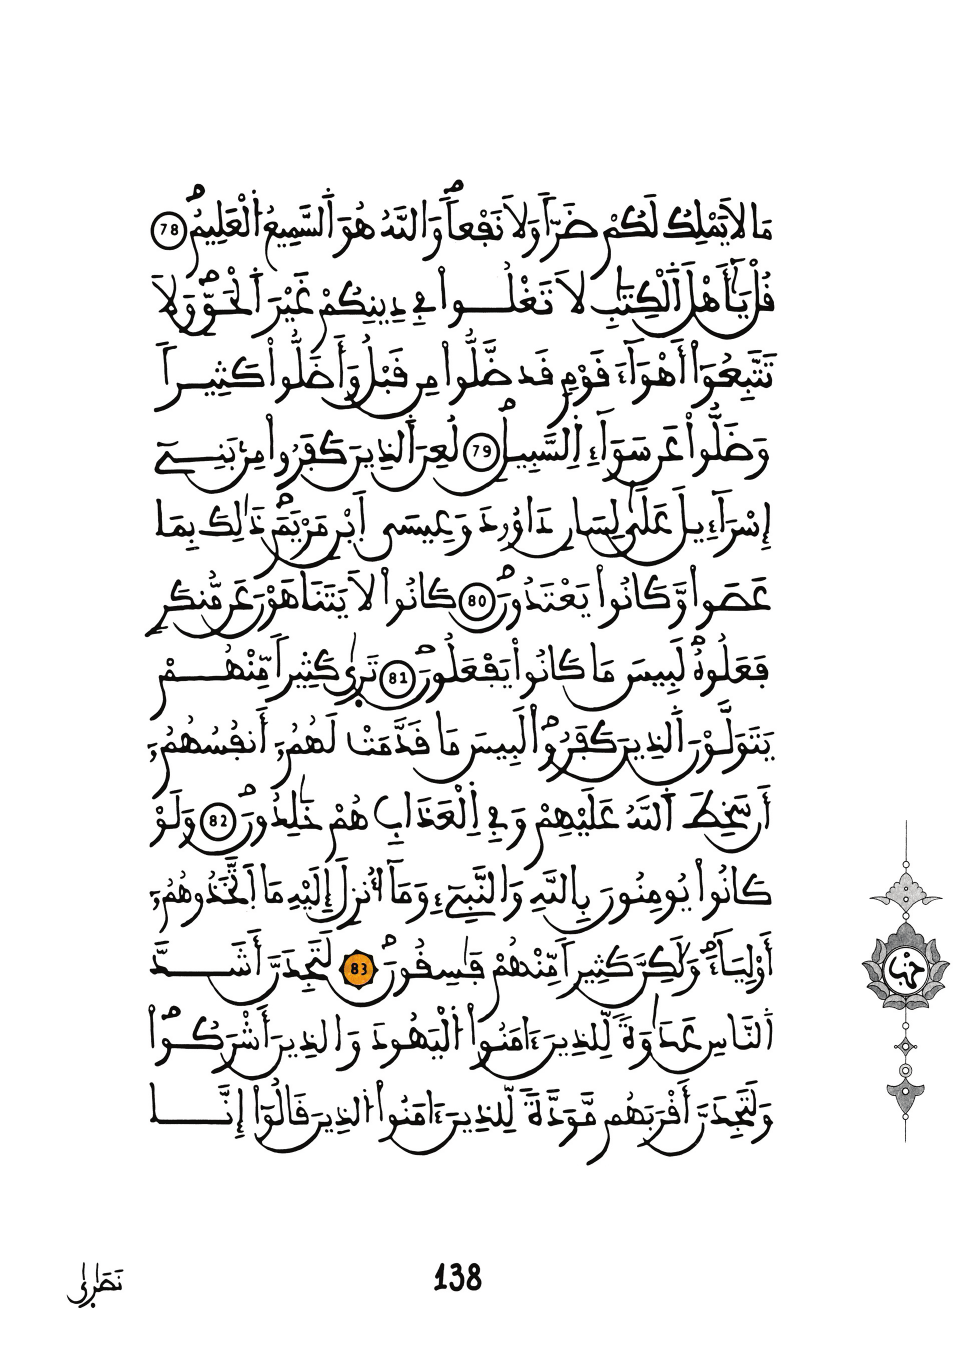 مَا لَا يَمْلِكُ لَكُمْ ضَرّاً وَلَا نَفْعاً وَاللَّهُ هُوَ اَ۬لسَّمِيعُ اُ۬لْعَلِيمُ 78
قُلْ يَٰأَهْلَ اَ۬لْكِتَٰبِ لَا تَغْلُواْ فِي دِينِكُمْ غَيْرَ اَ۬لْحَقِّ وَلَا
تَتَّبِعُوٓاْ أَهْوَآءَ قَوْمٖ قَد ضَّلُّواْ مِن قَبْلُ وَأَضَلُّواْ كَثِيراً
وَضَلُّواْ عَن سَوَآءِ اِ۬لسَّبِيلِ 79 لُعِنَ اَ۬لذِينَ كَفَرُواْ مِنۢ بَنِےٓ
إِسْرَآءِيلَ عَلَىٰ لِسَانِ دَاوُۥدَ وَعِيسَى اَ۪بْنِ مَرْيَمَ ذَٰلِكَ بِمَا
عَصَواْ وَّكَانُواْ يَعْتَدُونَ 80 كَانُواْ لَا يَتَنَاهَوْنَ عَن مُّنكَرٖ
فَعَلُوهُ لَبِيسَ مَا كَانُواْ يَفْعَلُونَ 81 تَر۪ىٰ كَثِيراً مِّنْهُمْ
يَتَوَلَّوْنَ اَ۬لذِينَ كَفَرُواْ لَبِيسَ مَا قَدَّمَتْ لَهُمُۥٓ أَنفُسُهُمُۥٓ
أَن سَخِطَ اَ۬للَّهُ عَلَيْهِمْ وَفِي اِ۬لْعَذَابِ هُمْ خَٰلِدُونَ 82 وَلَوْ
كَانُواْ يُومِنُونَ بِاللَّهِ وَالنَّبِےٓءِ وَمَآ أُنزِلَ إِلَيْهِ مَا اَ۪تَّخَذُوهُمُۥٓ
أَوْلِيَآءَ وَلَٰكِنَّ كَثِيراً مِّنْهُمْ فَٰسِقُونَ 83 لَتَجِدَنَّ أَشَدَّ
اَ۬لنَّاسِ عَدَٰوَةً لِّلذِينَ ءَامَنُواْ اُ۬لْيَهُودَ وَالذِينَ أَشْرَكُواْ
وَلَتَجِدَنَّ أَقْرَبَهُم مَّوَدَّةً لِّلذِينَ ءَامَنُواْ اُ۬لذِينَ قَالُوٓاْ إِنَّا
حزب
نَصَٰر۪ىٰ
138